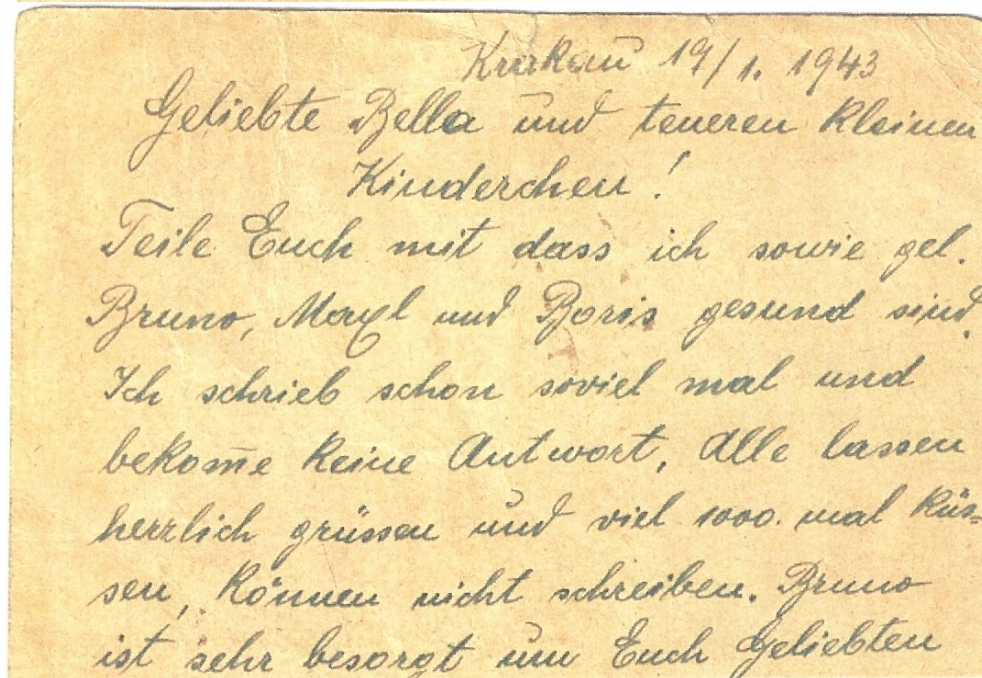 Krakau 19/1. 1943
Geliebte Bella und teueren kleinen
Kinderchen!
Teile Euch mit dass ich sowie gel.
Bruno, Maxl und Boris gesund sind.
Ich schrieb schon soviel mal und
bekom̅e keine Antwort, Alle lassen
herzlich grüssen und viel 1000. mal küs=
sen, können nicht schreiben. Bruno
ist sehr besorgt um Euch Geliebten